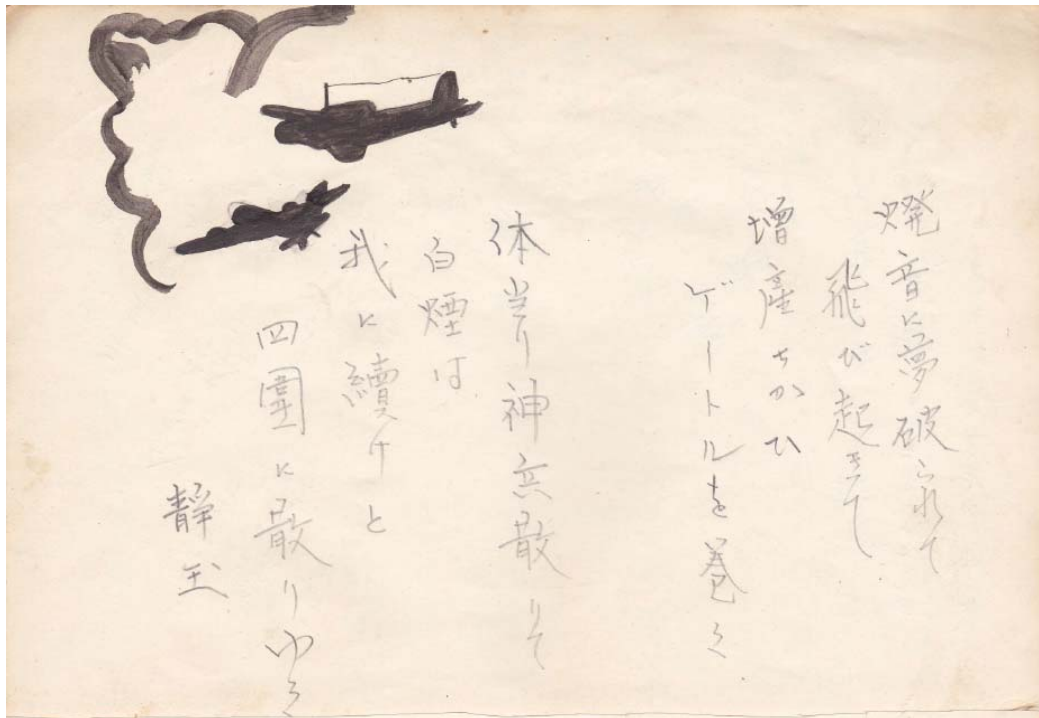 爆音に夢破られて
飛び起きて
增産ちかひ
ゲートルを巻く
体当り神兵散りて
白煙は
我に續けと
四圍に散りゆく
靜